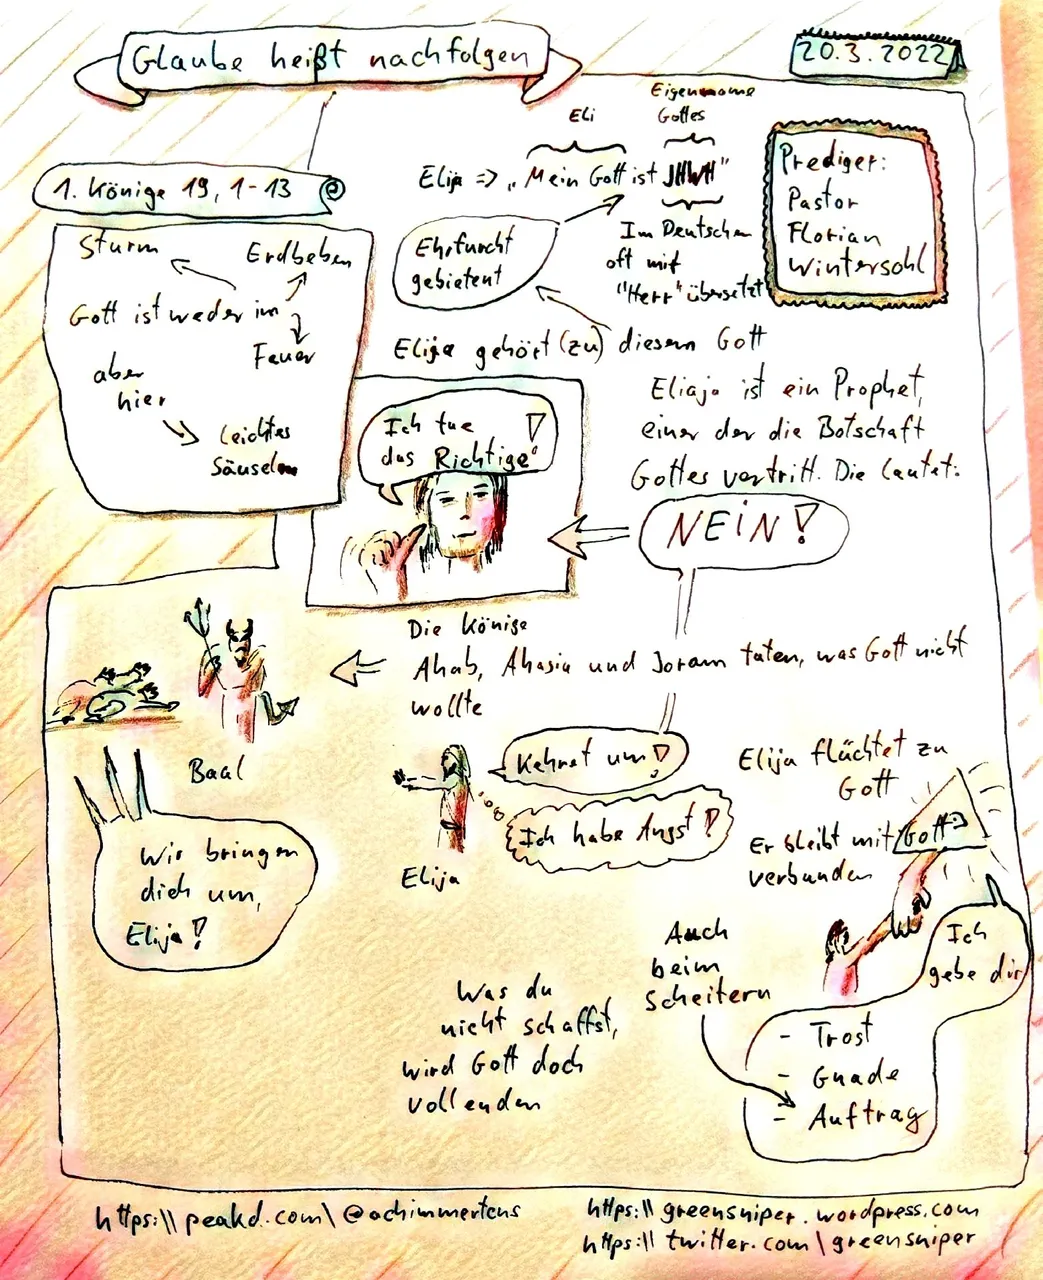 Glaube heißt nachfolgen
20.3.2022
1. Könige 19, 1-13
Sturm
Erdbeben
Gott ist weder im
Feuer
aber
hier
leichtes
Säuseln
Eli
Eigenname
Gottes
Elija => „Mein Gott ist JHWH"
Im Deutschen
oft mit
"Herr" übersetzt
Ehrfurcht
gebietent
Prediger:
Pastor
Florian
Wintersohl
Elija gehört (zu) diesem Gott
Eliaja ist ein Prophet,
einer der die Botschaft
Gottes vertritt. Die lautet:
NEIN!
Ich tue
das Richtige!
Die Könige
Ahab, Ahasia und Joram taten, was Gott nicht
wollte
Baal
Wir bringen
dich um,
Elija!
Kehret um!
Ich habe Angst!
Elija
Elija flüchtet zu
Gott
Er bleibt mit Gott
verbunden
Ich
gebe dir
- Trost
- Gnade
- Auftrag
Auch
beim
Scheitern
Was du
nicht schaffst,
wird Gott doch
vollenden
https:\\peakd.com\@achimmertens
https:\\greensniper.wordpress.com
https:\\twitter.com\greensniper